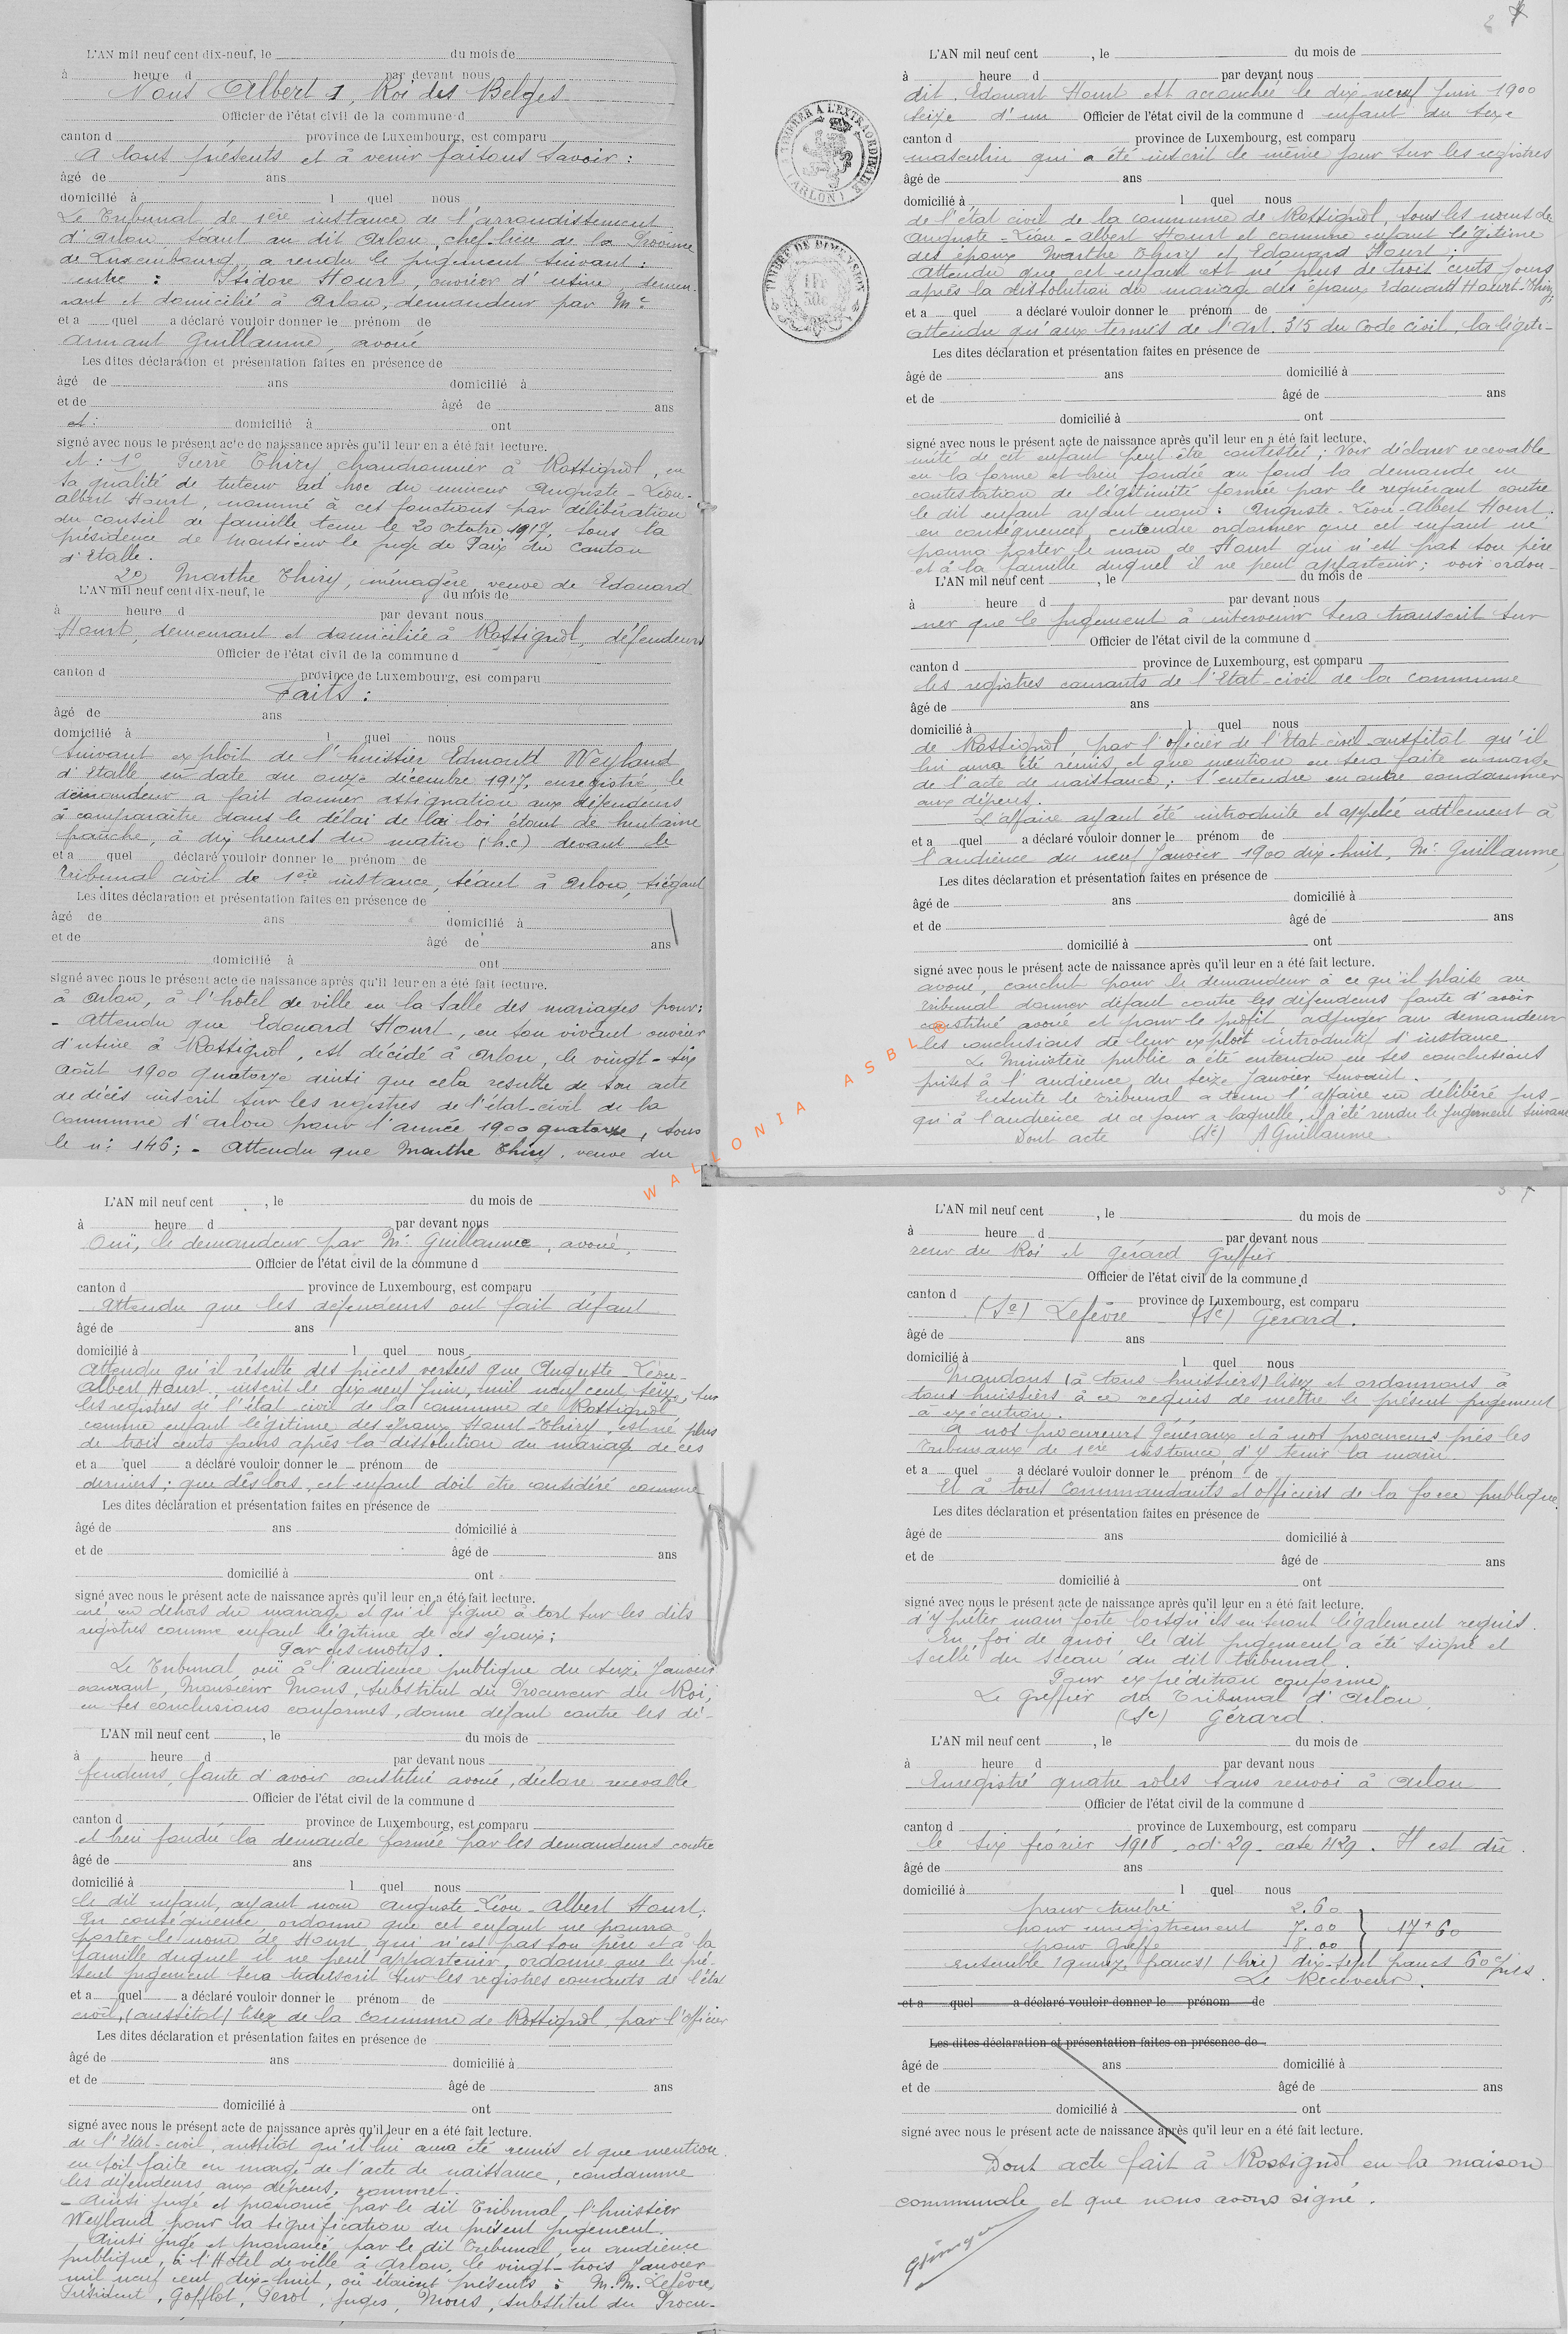 L'AN mil neuf cent dix-neuf, le du mois de
à heure d par devant nous
Nous Albert 1, Roi des Belges
Officier de l'état civil de la commune d
canton d province de Luxembourg, est comparu
A tous présents et à venir faisons savoir :
âgé de ans
domicilié à l quel nous
Le Tribunal de 1ère instance de l'arrondissement
d'Arlon, séant au dit Arlon, chef-lieu de la Province
de Luxembourg, a rendu le jugement suivant :
entre : Isidore Hourt, ouvrier d'usine, demeu-
rant et domicilié à Arlon, demandeur par Me
et a quel a déclaré vouloir donner le prénom de
Armant Guillaume, avoué
Les dites déclaration et présentation faites en présence de
âgé de ans domicilié à
et de âgé de ans
et : domicilié à ont
signé avec nous le présent acte de naissance après qu'il leur en a été fait lecture.
et : 1° Pierre Thiry, chaudronnier à Rossignol, en
sa qualité de tuteur ad hoc du mineur Auguste-Léon-
Albert Hourt, nommé à ces fonctions par délibération
du conseil de famille tenu le 20 octobre 1917, sous la
présidence de Monsieur le juge de Paix du Canton
d'Etalle.
2° Marthe Thiry, ménagère, veuve de Edouard
L'AN mil neuf cent dix-neuf, le du mois de
à heure d par devant nous
Hourt, demeurant et domiciliée à Rossignol, défendeurs
Officier de l'état civil de la commune d
canton d province de Luxembourg, est comparu
Faits :
âgé de ans
domicilié à l quel nous
Suivant exploit de l'huissier Edmond Weyland
d'Etalle en date du onze décembre 1917, enregistré, le
demandeur a fait donner assignation aux défendeurs
à comparaître dans le délai de la loi étant de huitaine
franche, à dix heures du matin (h.c) devant le
et a quel déclaré vouloir donner le prénom de
Tribunal civil de 1ère instance, séant à Arlon, siégant
Les dites déclaration et présentation faites en présence de
âgé de ans domicilié à
et de âgé de ans
domicilié à ont
signé avec nous le présent acte de naissance après qu'il leur en a été fait lecture.
à Arlon, à l'hôtel de ville en la salle des mariages pour :
- Attendu que Edouard Hourt, en son vivant ouvrier
d'usine à Rossignol, est décédé à Arlon, le vingt-six
Août 1900 quatorze ainsi que cela resulte de son acte
de décés inscrit sur les registres de l'état-civil de la
Commune d'Arlon pour l'année 1900 quatorze, sous
le n° 146 ; - Attendu que Marthe Thiry, veuve du
L'AN mil neuf cent , le du mois de
à heure d par devant nous
dit Edouart Hourt est accouchée le dix neuf Juin 1900
seize d'un Officier de l'état civil de la commune d enfant du sexe
canton d province de Luxembourg, est comparu
masculin qui a été inscrit le même jour sur les registres
âgé de ans
domicilié à l quel nous
de l'état civil de la commune de Rossignol, sous les noms de
Auguste-Léon-Albert Hourt et comme enfant légitime
des époux Marthe Thiry et Edouard Hourt ;
Attendu que cet enfant est né plus de trois cents jours
après la dissolution du mariage des époux Edouard Hourt-Thiry ;
et a quel a déclaré vouloir donner le prénom de
attendu qu'aux termes de l'Art. 315 du Code civil, la légiti-
Les dites déclaration et présentation faites en présence de
âgé de ans domicilié à
et de âgé de ans
domicilié à ont
signé avec nous le présent acte de naissance après qu'il leur en a été fait lecture.
mité de cet enfant peut être contestée ; Voir déclarer recevable
en la forme et bien fondée au fond la demande en
contestation de légitimité formée par le requérant contre
le dit enfant ayant nom : Auguste-Léon-Albert Hourt.
en conséquence, entendre ordonner que cet enfant ne
pourra porter le nom de Hourt qui n'est pas son père
et à la famille duquel il ne peut appartenir ; voir ordon-
L'AN mil neuf cent , le du mois de
à heure d par devant nous
ner que le jugement à intervenir sera transcrit sur
Officier de l'état civil de la commune d
canton d province de Luxembourg, est comparu
les registres courants de l'Etat-civil de la commune
âgé de ans
domicilié à l quel nous
de Rossignol, par l'officier de l'Etat-civil aussitôt qu'il
lui aura été remis et que mention en sera faite en marge
de l'acte de naissance ; s'entendre en outre condamner
aux dépens.
L'affaire ayant été introduite et appelée utilement à
et a quel a déclaré vouloir donner le prénom de
l'audience du neuf Janvier 1900 dix-huit, Me Guillaume,
Les dites déclaration et présentation faites en présence de
âgé de ans domicilié à
et de âgé de ans
domicilié à ont
signé avec nous le présent acte de naissance après qu'il leur en a été fait lecture.
avoué, conclut pour le demandeur à ce qu'il plaise au
Tribunal donner défaut contre les défendeurs faute d'avoir
constitué avoué et pour le profit, adjuger au demandeur
les conclusions de leur exploit introductif d'instance
Le Ministère public a été entendu en ses conclusions
prises à l'audience du seize Janvier suivant.
Ensuite le Tribunal a tenu l'affaire en délibéré jus-
qu'à l'audience de ce jour à laquelle il a été rendu le Jugement suivant
Dont acte (Sé) A Guillaume
TIMBRER A L'EXTRAORDINAIRE
(ARLON)
TIMBRE DE DIMENSION
1 FR
50c
WALLONIA ASBL ®
L'AN mil neuf cent , le du mois de
à heure d par devant nous
Ouï, le demandeur par Me Guillaume, avoué,
Officier de l'état civil de la commune d
canton d province de Luxembourg, est comparu
Attendu que les défendeurs ont fait défaut
âgé de ans
domicilié à l quel nous
Attendu qu'il résulte des pièces versées que Auguste-Léon-
Albert Hourt, inscrit le dix neuf Juin, mil neuf cent seize, sur
les registres de l'état civil de la commune de Rossignol
comme enfant légitime des époux Hourt-Thiry, est né plus
de trois cents jours après la dissolution du mariage de ces
et a quel a déclaré vouloir donner le prénom de
derniers ; que dès lors, cet enfant doit être considéré comme
Les dites déclaration et présentation faites en présence de
âgé de ans domicilié à
et de âgé de ans
domicilié à ont
signé avec nous le présent acte de naissance après qu'il leur en a été fait lecture.
né en dehors du mariage et qu'il figure à tort sur les dits
registres comme enfant légitime de ces époux ;
Par ces motifs.
Le Tribunal, ouï à l'audience publique du seize Janvier
courant, Monsieur Mons, substitut du Procureur du Roi,
en ses conclusions conformes, donne défaut contre les dé-
L'AN mil neuf cent , le du mois de
à heure d par devant nous
fendeurs, faute d'avoir constitué avoué, déclare recevable
Officier de l'état civil de la commune d
canton d province de Luxembourg, est comparu
et bien fondée la demande formée par les demandeurs contre
âgé de ans
domicilié à l quel nous
le dit enfant, ayant nom Auguste-Léon-Albert Hourt,
En conséquence ordonne que cet enfant ne pourra
porter le nom de Hourt qui n'est pas son père et à la
famille duquel il ne peut appartenir, ordonne que le pré-
sent jugement sera transcrit sur les registres courants de l'état
et a quel a déclaré vouloir donner le prénom de
civil, (aussitôt) lisez de la commune de Rossignol, par l'officier
Les dites déclaration et présentation faites en présence de
âgé de ans domicilié à
et de âgé de ans
domicilié à ont
signé avec nous le présent acte de naissance après qu'il leur en a été fait lecture.
de l'Etat-civil, aussitôt qu'il lui aura été remis et que mention
en soit faite en marge de l'acte de naissance, condamne
les défendeurs aux dépens, commet.
- Ainsi jugé et prononcé par le dit Tribunal l'huissier
Weyland pour la signification du présent jugement.
Ainsi jugé et prononcé par le dit Tribunal, en audience
publique, à l'Hôtel de ville à Arlon, le vingt-trois Janvier
mil neuf cent dix-huit, où étaient présents : M.M. Lefèvre,
Président, Gofflot, Perot, juges, Mons, substitut du Procu-
L'AN mil neuf cent , le du mois de
à heure d par devant nous
reur du Roi et Gérard Greffier
Officier de l'état civil de la commune d
canton d province de Luxembourg, est comparu
(Sé) Lefèvre (Sé) Gérard.
âgé de ans
domicilié à l quel nous
Mandons (à tous huissiers) lisez et ordonnons à
tous huissiers à ce requis de mettre le présent jugement
à exécution.
A nos procureurs Généraux et à nos procureurs près les
Tribunaux de 1ère instance, d'y tenir la main.
et a quel a déclaré vouloir donner le prénom de
Et à tous Commandants et officiers de la force publique
Les dites déclaration et présentation faites en présence de
âgé de ans domicilié à
et de âgé de ans
domicilié à ont
signé avec nous le présent acte de naissance après qu'il leur en a été fait lecture.
d'y prêter main forte lorsqu'ils en seront légalement requis.
En foi de quoi, le dit jugement a été signé et
scellé du sceau du dit tribunal.
Pour expédition conforme
Le Greffier du Tribunal d'Arlon,
(Sé) Gérard.
L'AN mil neuf cent , le du mois de
à heure d par devant nous
Enregistré quatre rôles sans renvoi à Arlon
Officier de l'état civil de la commune d
canton d province de Luxembourg, est comparu
le six février 1918, vol. 29 case 429. Il est dû
âgé de ans
domicilié à l quel nous
pour timbre 2.60
pour enregistrement 7.00 } 17f 60
pour Greffe 8.00
ensemble (quinze francs) (lire) dix-sept francs 60 c/mes
Le Receveur.
et a quel a déclaré vouloir donner le prénom de
Les dites déclaration et présentation faites en présence de
âgé de ans domicilié à
et de âgé de ans
domicilié à ont
signé avec nous le présent acte de naissance après qu'il leur en a été fait lecture.
Dont acte fait à Rossignol en la maison
communale et que nous avons signé.